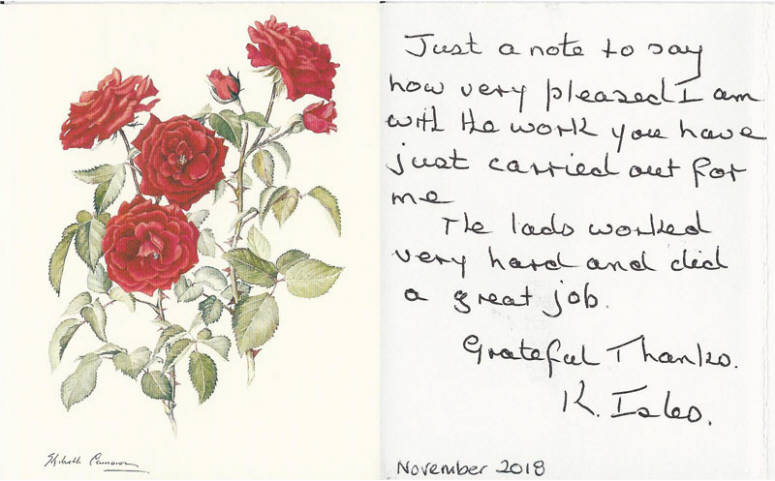 Elizabeth Cameron
Just a note to say
how very pleased I am
with the work you have
just carried out for
me
The lads worked
very hard and did
a great job.
Grateful Thanks.
K. Isles.
November 2018